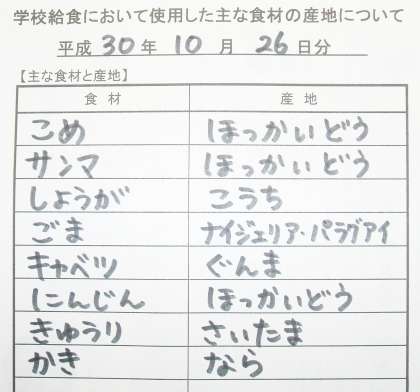 学校給食において使用した主な食材の産地について
平成 30 年 10 月 26 日分
【主な食材と産地】
食材 産地
こめ ほっかいどう
サンマ ほっかいどう
しょうが こうち
ごま ナイジェリア・パラグアイ
キャベツ ぐんま
にんじん ほっかいどう
きゅうり さいたま
かき なら